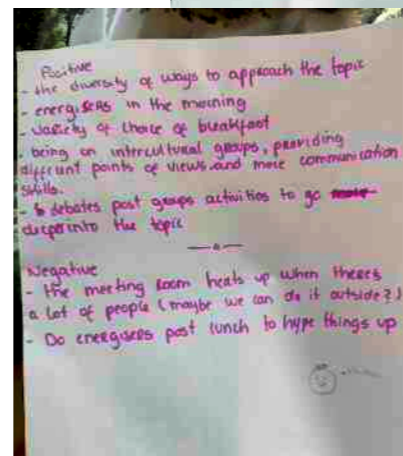 Positive
- the diversity of ways to approach the topic
- energisers in the morning
- variety of choice of breakfast
- being on intercultural groups, providing
different points of views and more communication
skills.
- debates post groups activities to go
deeper into the topic
Negative
- the meeting room heats up when there's
a lot of people (maybe we can do it outside?)
- Do energisers post lunch to hype things up